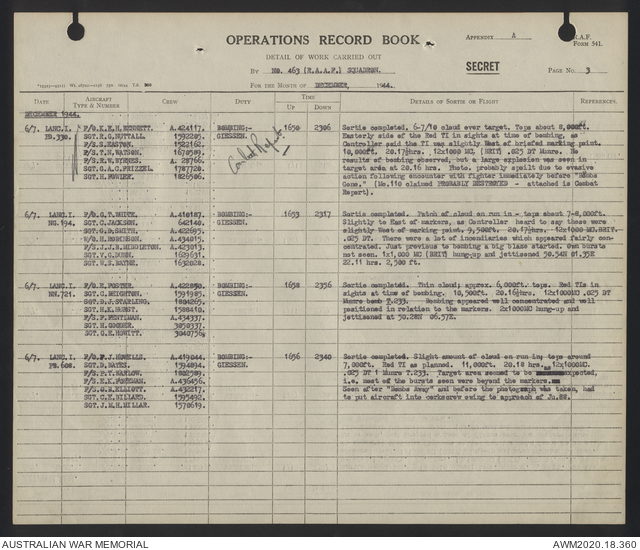 APPENDIX A
R.A.F. Form 541.
OPERATIONS RECORD BOOK
DETAIL OF WORK CARRIED OUT
SECRET
BY No. 463 (R.A.A.F.) SQUADRON.
FOR THE MONTH OF DECEMBER, 1944.
PAGE No. 3
DATE AIRCRAFT TYPE & NUMBER CREW DUTY TIME UP DOWN DETAILS OF SORTIE OR FLIGHT REFERENCES.
DECEMBER 1944.
6/7. LANC.I. F/O. K.E.H. BENNETT. A.424117. BOMBING:- 1650 2306 Sortie completed. 6-7/10 cloud over target. Tops about 8,000ft.
PD.330. SGT. R.G. NUTTALL. 1592205. GIESSEN. Easterly side of the Red TI in sights at time of bombing, as
F/S. S. EASTON. 1522162. Controller said the TI was slightly West of briefed marking point.
F/S. T.N. WATSON. 10,000ft. 20.17½hrs. , 12x1000 MC. (BRIT) .025 DT Munro. No
F/S. R.W. BYRNES. A. 28766. results of bombing observed, but a large explosion was seen in
SGT. G.A.C. 1787720. target area at 20.16 hrs. Photo. probably spilt due to evasive
SGT. H. FOWLER. 1826506. action following encounter with fighter immediately before "Bombs
Gone." (Me.110 claimed PROBABLY DESTROYED - attached is Combat
Report).
Combat Report
6/7. LANC.I. F/O. G.T. WHITE. A.410187. BOMBING:- 1653 2317 Sortie completed. Patch of cloud on run in - tops about 7-8,000ft.
NG.194. SGT. C. JACKSON. 642140. GIESSEN. Slightly to East of markers, as Controller heard to say these were
SGT. G.D. SMITH. A.422695. slightly West of marking point. 9,500ft. 20.17½hrs. 12x1000 MC.BRIT.
W/O. H. ROBINSON. A.434015. .025 DT. There were a lot of incendiaries which appeared fairly con-
F/S. J.J.B. A.423013. centrated. Just previous to bombing a big blaze started. Own bursts
SGT. V.G. DUNN. 1629631. not seen. 1x1,000 MC (BRIT) hung-up and jettisoned 50.54N 01.35E
SGT. W.S. BAYNE. 1632028. 22.11 hrs. 2,500 ft.
6/7. LANC.I. F/O. R. FOSTER. A.422850. BOMBING:- 1658 2356 Sortie completed. Thin cloud; approx. 6,000ft. tops. Red TIs in
NN.721. SGT. G. BEIGHTON. 1591985. GIESSEN. sights at time of bombing. 10,500ft. 20.16½hrs. 12x1000MC .025 DT
SGT. D.J. STARLING. 1804265. Munro bomb T.233. Bombing appeared well concentrated and well
SGT. H.K. HURST. 1586410. positioned in relation to the markers. 2x1000MC hung-up and
F/S. F. PENTIMAN. A.434337. jettisoned at 50.28N 06.57E.
SGT. H. 3050337.
SGT. G.E. HOWITT. 3040756.
6/7. LANC.I. F/O. F.J. HOWELLS. A.419044. BOMBING:- 1656 2340 Sortie completed. Slight amount of cloud on run in; tops around
PD.608. SGT. D. BATES. 1594894. GIESSEN. 7,000ft. Red TI as planned. 11,000ft. 20.18 hrs. 12x1000MC.
F/S. P.T. WARLOW. .025 DT 1 Munro T.233. Target area seemed to be expected,
F/S. H.K. FOREMAN. A.436456. i.e. most of the bursts were beyond the markers.
SGT. G.B. ELLIOTT. A.432217. Soon after "Bombs Away" and before the photograph was taken, had
SGT. C.K. HILLARD. 1595492. to put aircraft into corkscrew owing to approach of Ju.88.
SGT. J.M.H. MILLAR. 1570619.
AUSTRALIAN WAR MEMORIAL AWM2020.18.360